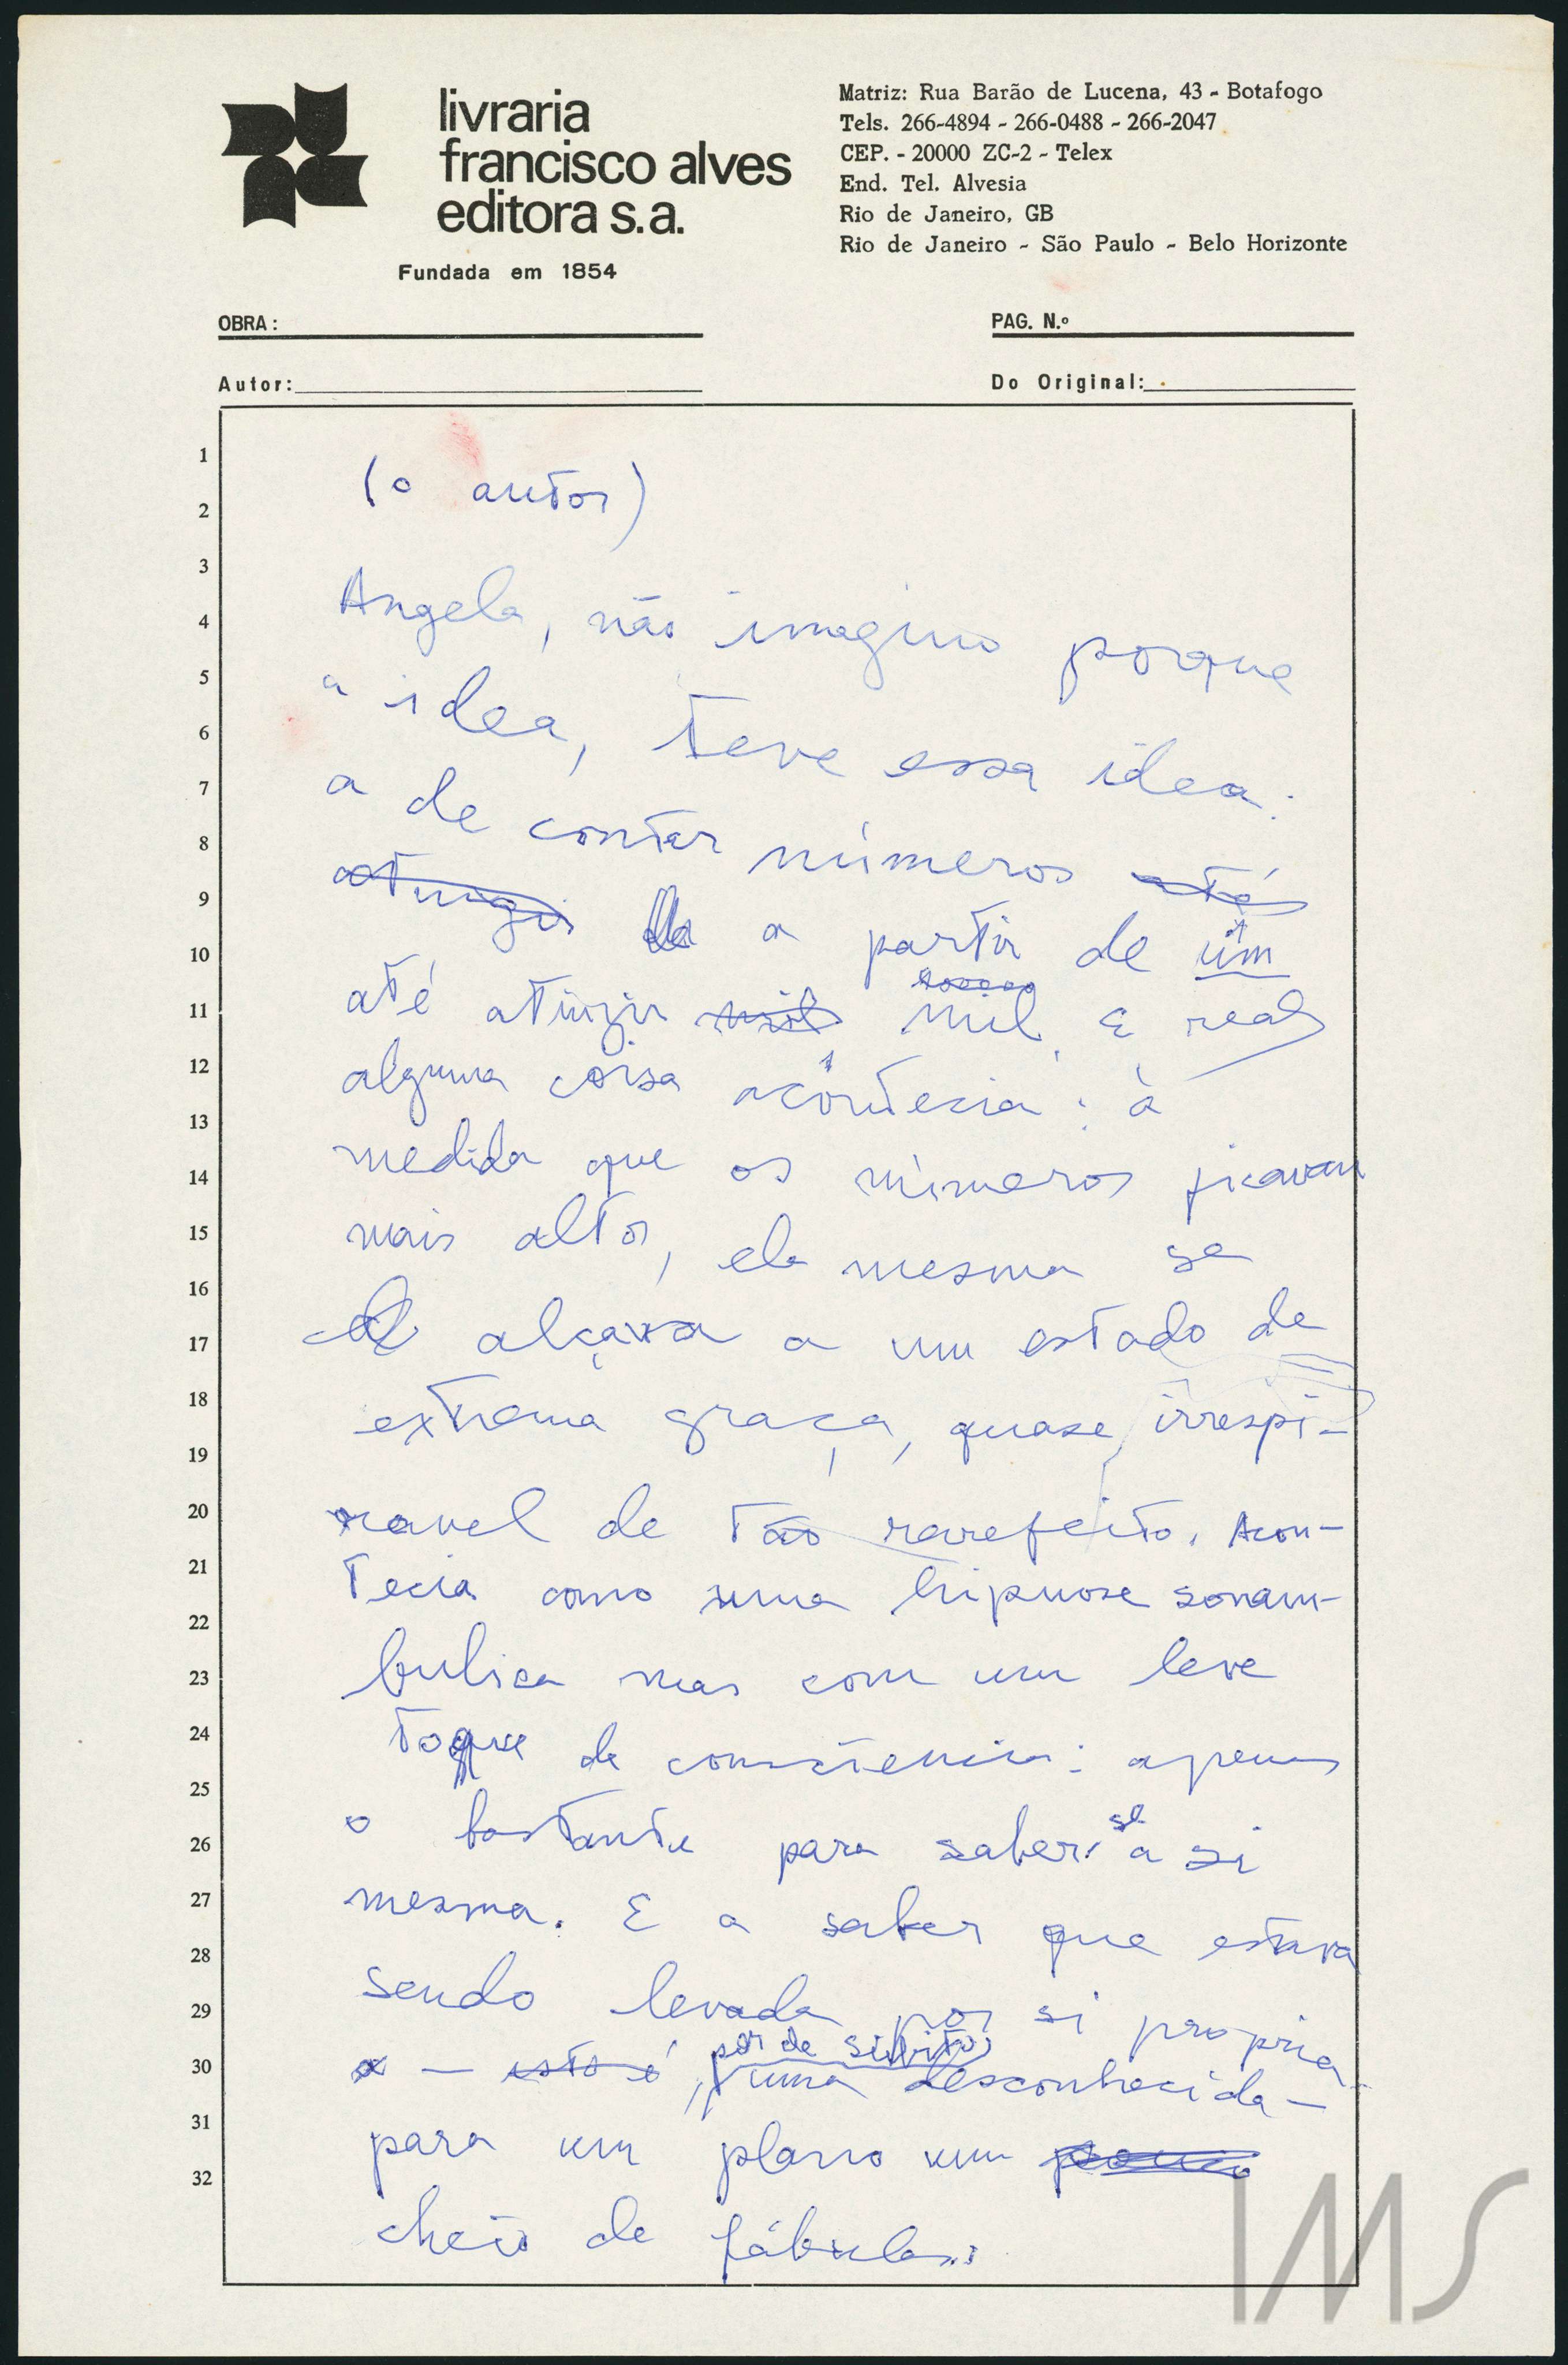 livraria
francisco alves
editora s.a.
Fundada em 1854
Matriz: Rua Barão de Lucena, 43 - Botafogo
Tels. 266-4894 - 266-0488 - 266-2047
CEP. - 20000 ZC-2 - Telex
End. Tel. Alvesia
Rio de Janeiro, GB
Rio de Janeiro - São Paulo - Belo Horizonte
OBRA:
PAG. N.º
Autor:
Do Original:
1
2
3
4
5
6
7
8
9
10
11
12
13
14
15
16
17
18
19
20
21
22
23
24
25
26
27
28
29
30
31
32
(o autor)
Angela, não imagino porque
a idea, teve essa idea:
a de contar números até
atingir a partir de um
até atingir mil mil. E real
alguma coisa acontecia: à
medida que os números ficavam
mais altos, ela mesma se
alçava a um estado de
extrema graça, quase irrespi-
ravel de tão rarefeito. Acon-
tecia como uma hipnose sonam-
bulica mas com um leve
toque de consciencia: apenas
o bastante para saber se a si
mesma. E a saber que estava
sendo levada por si propria
— isto é, por de súbito uma desconhecida —
para um plano um pouco
cheio de fábulas.
IMS